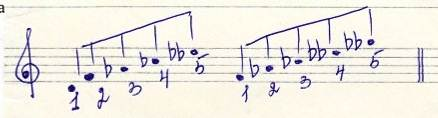 a
1 2 3 4 5 1 2 3 4 5